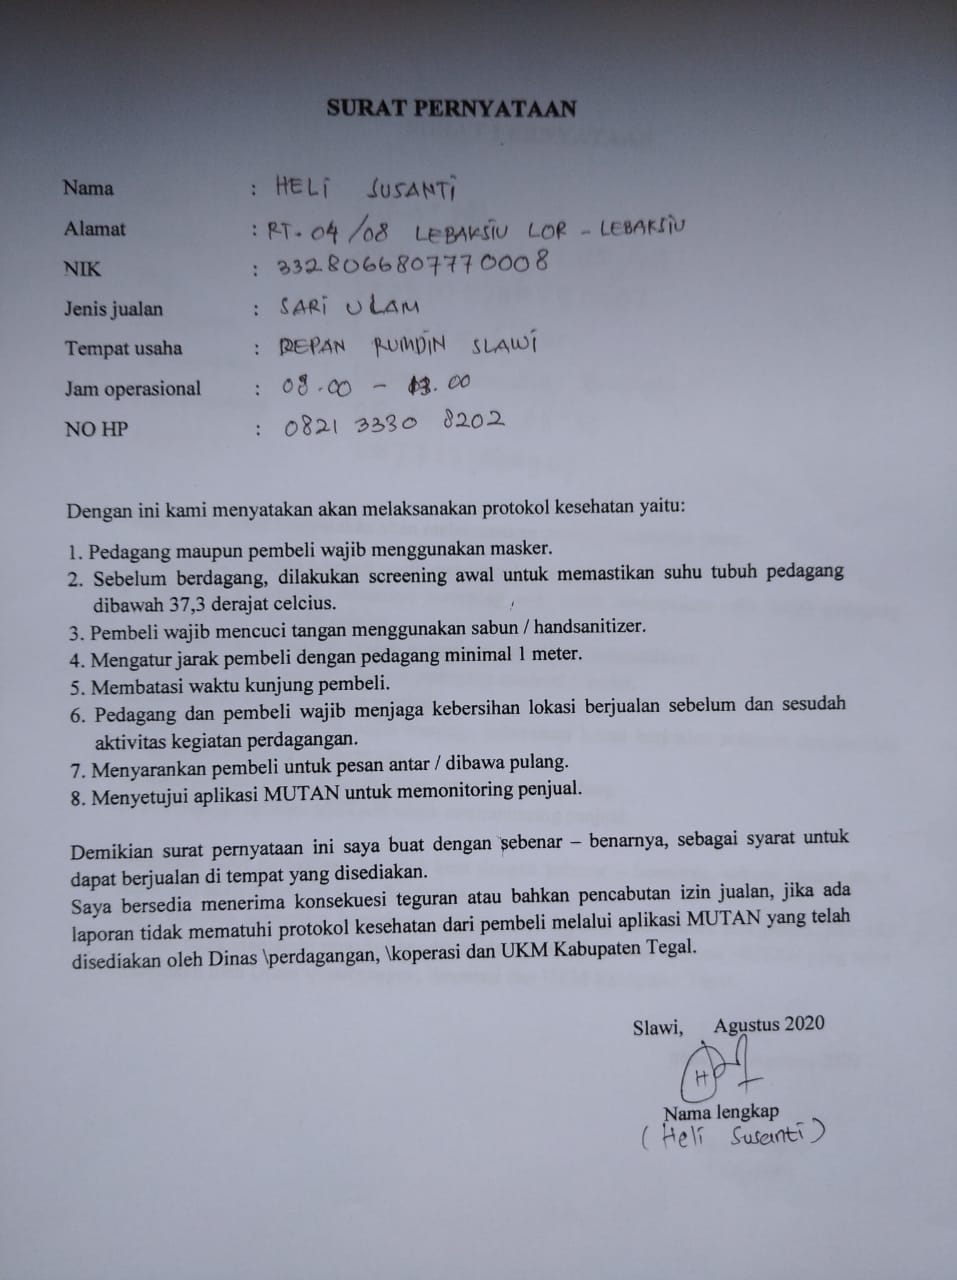 SURAT PERNYATAAN
Nama : HELI SUSANTI
Alamat : RT. 04/08 LEBAKSIU LOR - LEBAKSIU
NIK : 3328066807770008
Jenis jualan : SARI ULAM
Tempat usaha : DEPAN RUMDIN SLAWI
Jam operasional : 08.00 - 13.00
NO HP : 0821 3330 8202
Dengan ini kami menyatakan akan melaksanakan protokol kesehatan yaitu:
1. Pedagang maupun pembeli wajib menggunakan masker.
2. Sebelum berdagang, dilakukan screening awal untuk memastikan suhu tubuh pedagang
dibawah 37,3 derajat celcius.
3. Pembeli wajib mencuci tangan menggunakan sabun / handsanitizer.
4. Mengatur jarak pembeli dengan pedagang minimal 1 meter.
5. Membatasi waktu kunjung pembeli.
6. Pedagang dan pembeli wajib menjaga kebersihan lokasi berjualan sebelum dan sesudah
aktivitas kegiatan perdagangan.
7. Menyarankan pembeli untuk pesan antar / dibawa pulang.
8. Menyetujui aplikasi MUTAN untuk memonitoring penjual.
Demikian surat pernyataan ini saya buat dengan sebenar – benarnya, sebagai syarat untuk
dapat berjualan di tempat yang disediakan.
Saya bersedia menerima konsekuesi teguran atau bahkan pencabutan izin jualan, jika ada
laporan tidak mematuhi protokol kesehatan dari pembeli melalui aplikasi MUTAN yang telah
disediakan oleh Dinas \perdagangan, \koperasi dan UKM Kabupaten Tegal.
Slawi, Agustus 2020
Nama lengkap
( Heli Susanti )